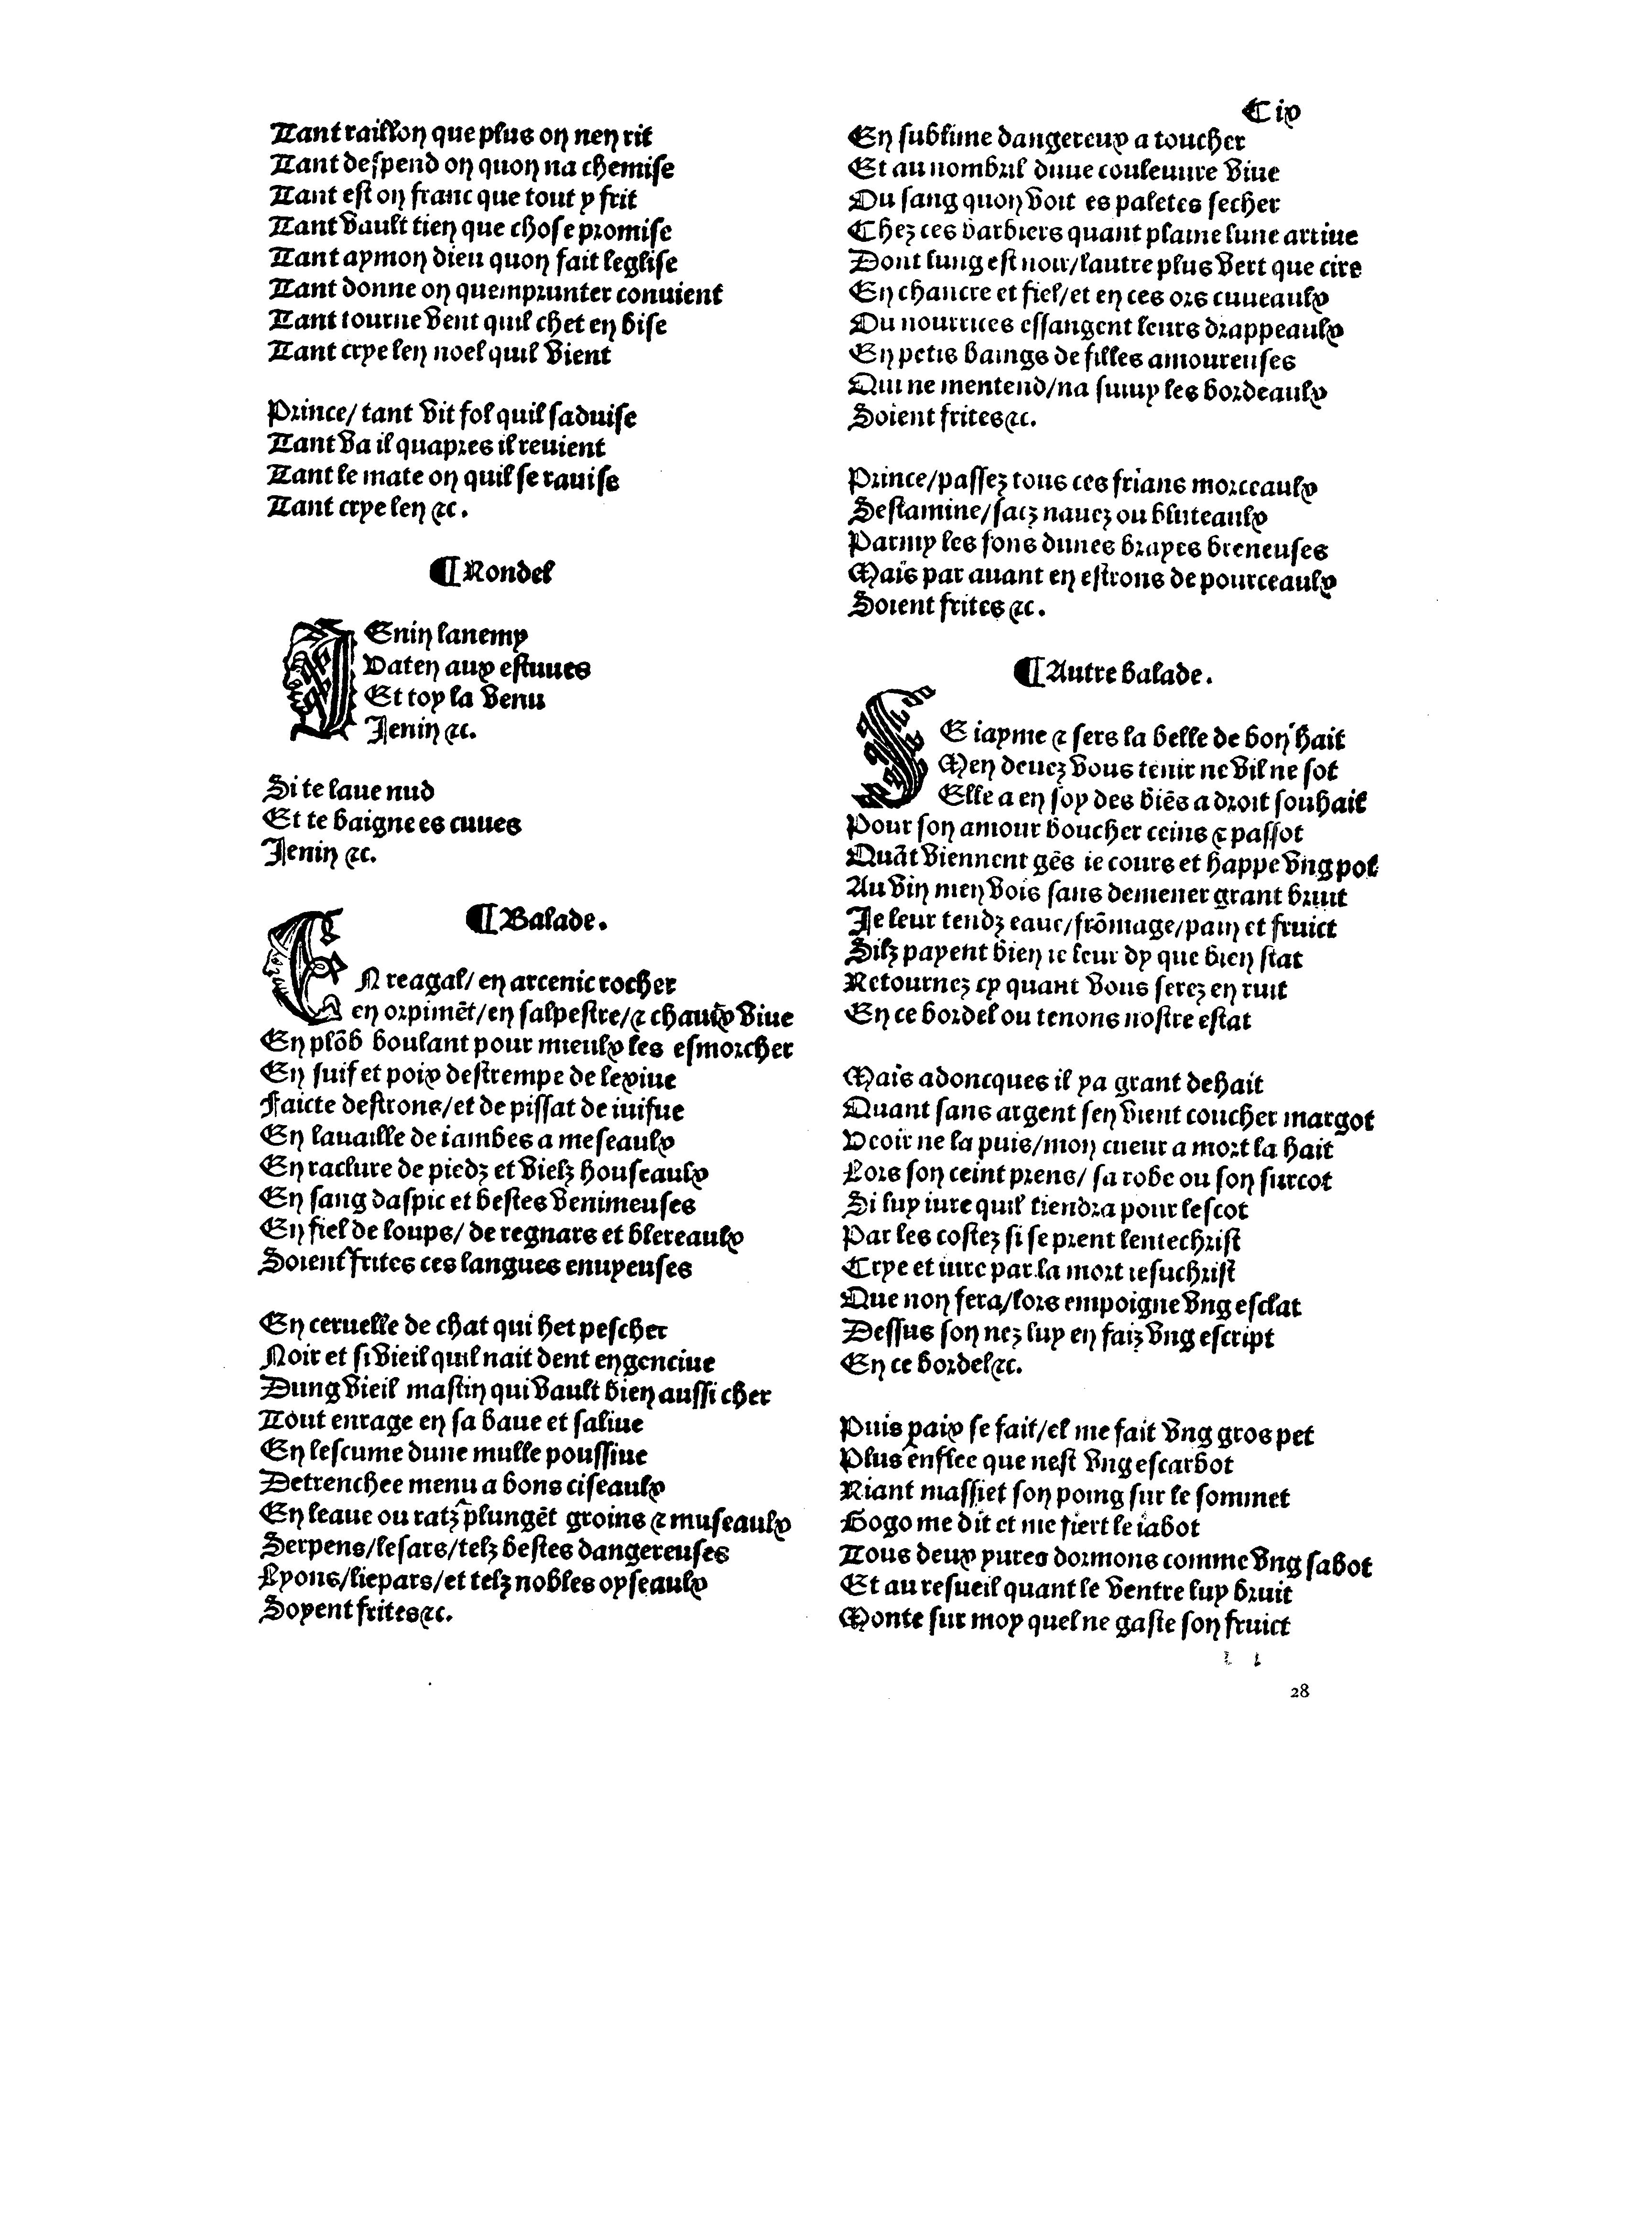 C ix
Tant raillon que plus on nen rit
Tant despend on quon na chemise
Tant est on franc que tout y frit
Tant vault tien que chose promise
Tant aymon dieu quon fait leglise
Tant donne on quemprunter conuient
Tant tourne vent quil chet en bise
Tant crye len noel quil vient
Prince/ tant vit fol quil saduise
Tant va il quapres il reuient
Tant le mate on quil se rauise
Tant crye len ⁊c.
¶ Rondel
IEnin lanemy
Vaten aux estuues
Et toy la venu
Jenin ⁊c.
Si te laue nud
Et te baigne es cuues
Jenin ⁊c.
¶ Balade.
EN reagal/ en arcenic rocher
en orpimēt/en salpestre/⁊ chaulx viue
En plōb boulant pour mieulx les esmorcher
En suif et poix destrempe de lexiue
Faicte destrons/et de pissat de iuifue
En lauaille de iambes a meseaulx
En raclure de piedz et vielz houseaulx
En sang daspic et bestes venimeuses
En fiel de loups/ de regnars et blereaulx
Soient frites ces langues enuyeuses
En ceruelle de chat qui het pescher
Noir et si vieil quil nait dent en genciue
Dung vieil mastin qui vault bien aussi cher
Tout enrage en sa baue et saliue
En lescume dune mulle poussiue
Detrenchee menu a bons ciseaulx
En leaue ou ratz plungēt groins ⁊ museaulx
Serpens/lesars/telz bestes dangereuses
Lyons/liepars/et telz nobles oyseaulx
Soyent frites⁊c.
En sublime dangereux a toucher
Et au nombril dune couleuure viue
Du sang quon voit es paletes secher
Chez ces barbiers quant plaine lune arriue
Dont lung est noir/lautre plus vert que cire
En chancre et fiel/et en ces ors cuueaulx
Ou nourrices essangent leurs drappeaulx
En petis baings de filles amoureuses
Qui ne mentend/na suiuy les bordeaulx
Soient frites⁊c.
Prince/passez tous ces frians morceaulx
Sestamine/sacz nauez ou bluteaulx
Parmy les fons dunes brayes breneuses
Mais par auant en estrons de pourceaulx
Soient frites ⁊c.
¶ Autre balade.
SE iayme ⁊ sers la belle de bon hait
Men deuez vous tenir ne vil ne sot
Elle a en soy des biēs a droit souhait
Pour son amour boucher ceins ⁊ passot
Quāt viennent gēs ie cours et happe vng pot
Au vin men vois sans demener grant bruit
Je leur tendz eaue/frōmage/pain et fruict
Silz payent bien ie leur dy que bien stat
Retournez cy quant vous serez en ruit
En ce bordel ou tenons nostre estat
Mais adoncques il ya grant dehait
Quant sans argent sen vient coucher margot
Veoir ne la puis/mon cueur a mort la hait
Lors son ceint prens/ sa robe ou son surcot
Si luy iure quil tiendra pour lescot
Par les costez si se prent lentechrist
Crye et iure par la mort iesuchrist
Que non fera/lors empoigne vng esclat
Dessus son nez luy en faiz vng escript
En ce bordel⁊c.
Puis paix se fait/el me fait vng gros pet
Plus enflee que nest vng escarbot
Riant massiet son poing sur le sommet
Gogo me dit et me fiert le iabot
Tous deux yures dormons comme vng sabot
Et au resueil quant le ventre luy bruit
Monte sur moy quel ne gaste son fruict
28